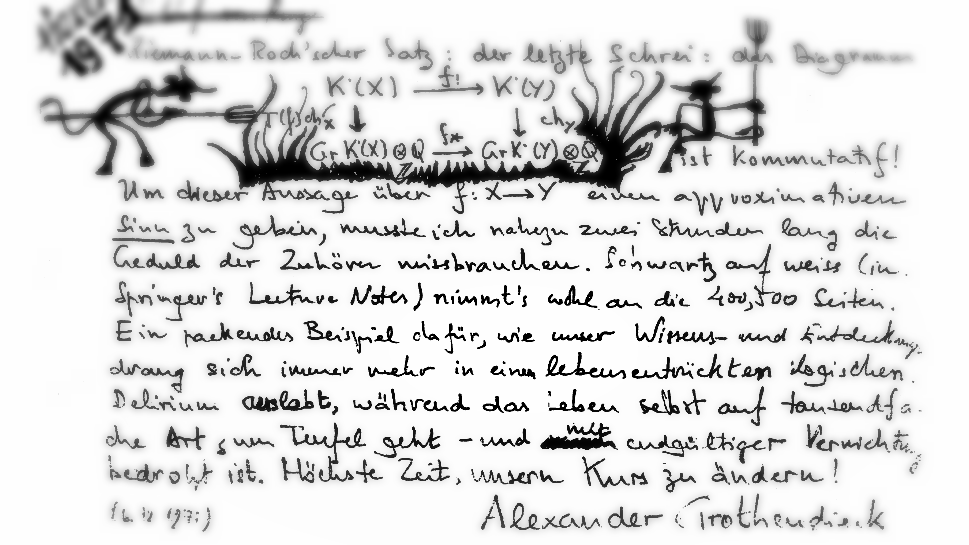 1971
Riemann-Roch'scher Satz: der letzte Schrei: das Diagramm
K·(X) f! → K·(Y)
T(f)chx ↓ ↓ chY
Gr K·(X) ⊗ Q f* → Gr K·(Y) ⊗ Q
Z Z ist kommutatif!
Um dieser Aussage über f: X → Y einen approximativen
Sinn zu geben, musste ich nahezu zwei Stunden lang die
Geduld der Zuhörer missbrauchen. Schwartz auf weiss (in
Springer's Lecture Notes) nimmt's wohl an die 400, 500 Seiten.
Ein packendes Beispiel dafür, wie unser Wissens- und Entdeckungs-
drang sich immer mehr in einem lebensentrückten logischen
Delirium auslebt, während das Leben selbst auf tausendfa-
che Art zum Teufel geht - und mit endgültiger Vernichtung
bedroht ist. Höchste Zeit, unsern Kurs zu ändern!
Alexander Grothendieck